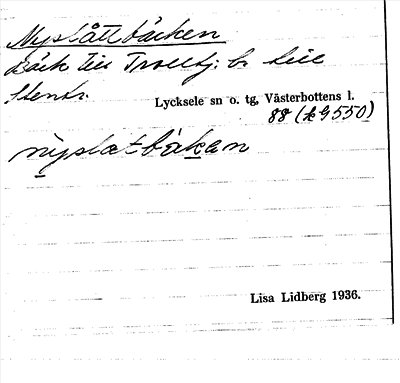 Myslåttbäcken
Bäck till Trolltj: b. till
Stentr.
Lycksele sn o. tg, Västerbottens l.
88 (kg 550)
nyslætbäkan
Lisa Lidberg 1936.